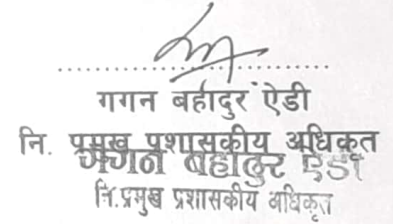 गगन बहादुर ऐडी
नि. प्रमुख प्रशासकीय अधिकृत
गगन बहादुर ऐडी
नि.प्रमुख प्रशासकीय अधिकृत